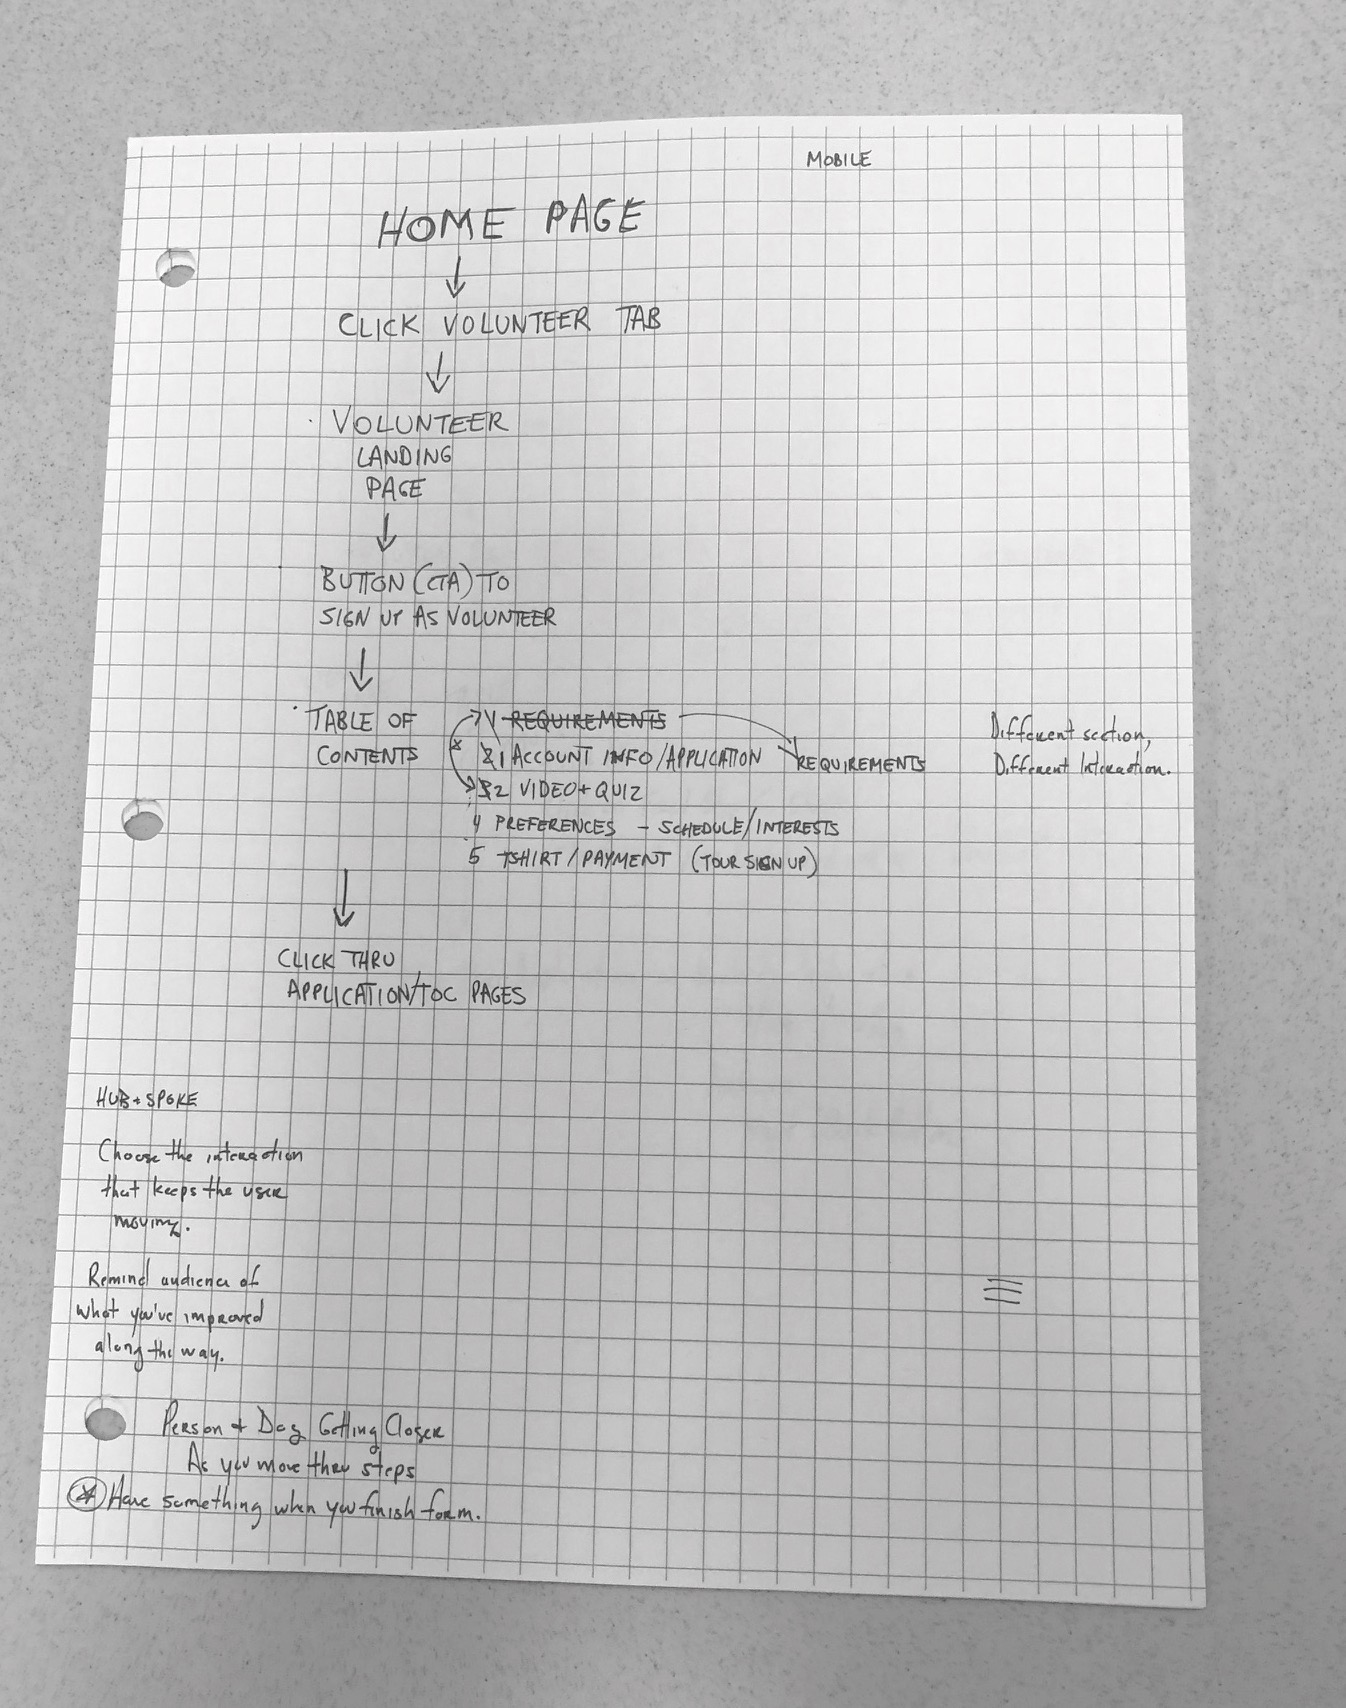 MOBILE
HOME PAGE
CLICK VOLUNTEER TAB
VOLUNTEER
LANDING
PAGE
BUTTON (CTA) TO
SIGN UP AS VOLUNTEER
TABLE OF
CONTENTS
1 REQUIREMENTS
1 ACCOUNT INFO/APPLICATION
REQUIREMENTS
2 VIDEO + QUIZ
4 PREFERENCES - SCHEDULE/INTERESTS
5 TSHIRT/PAYMENT (TOUR SIGN UP)
Different section,
Different Interaction.
CLICK THRU
APPLICATION/TOC PAGES
HUB + SPOKE
Choose the interaction
that keeps the user
moving.
Remind audience of
what you've improved
along the way.
Person + Dog Getting Closer
As you move thru steps
Have something when you finish form.